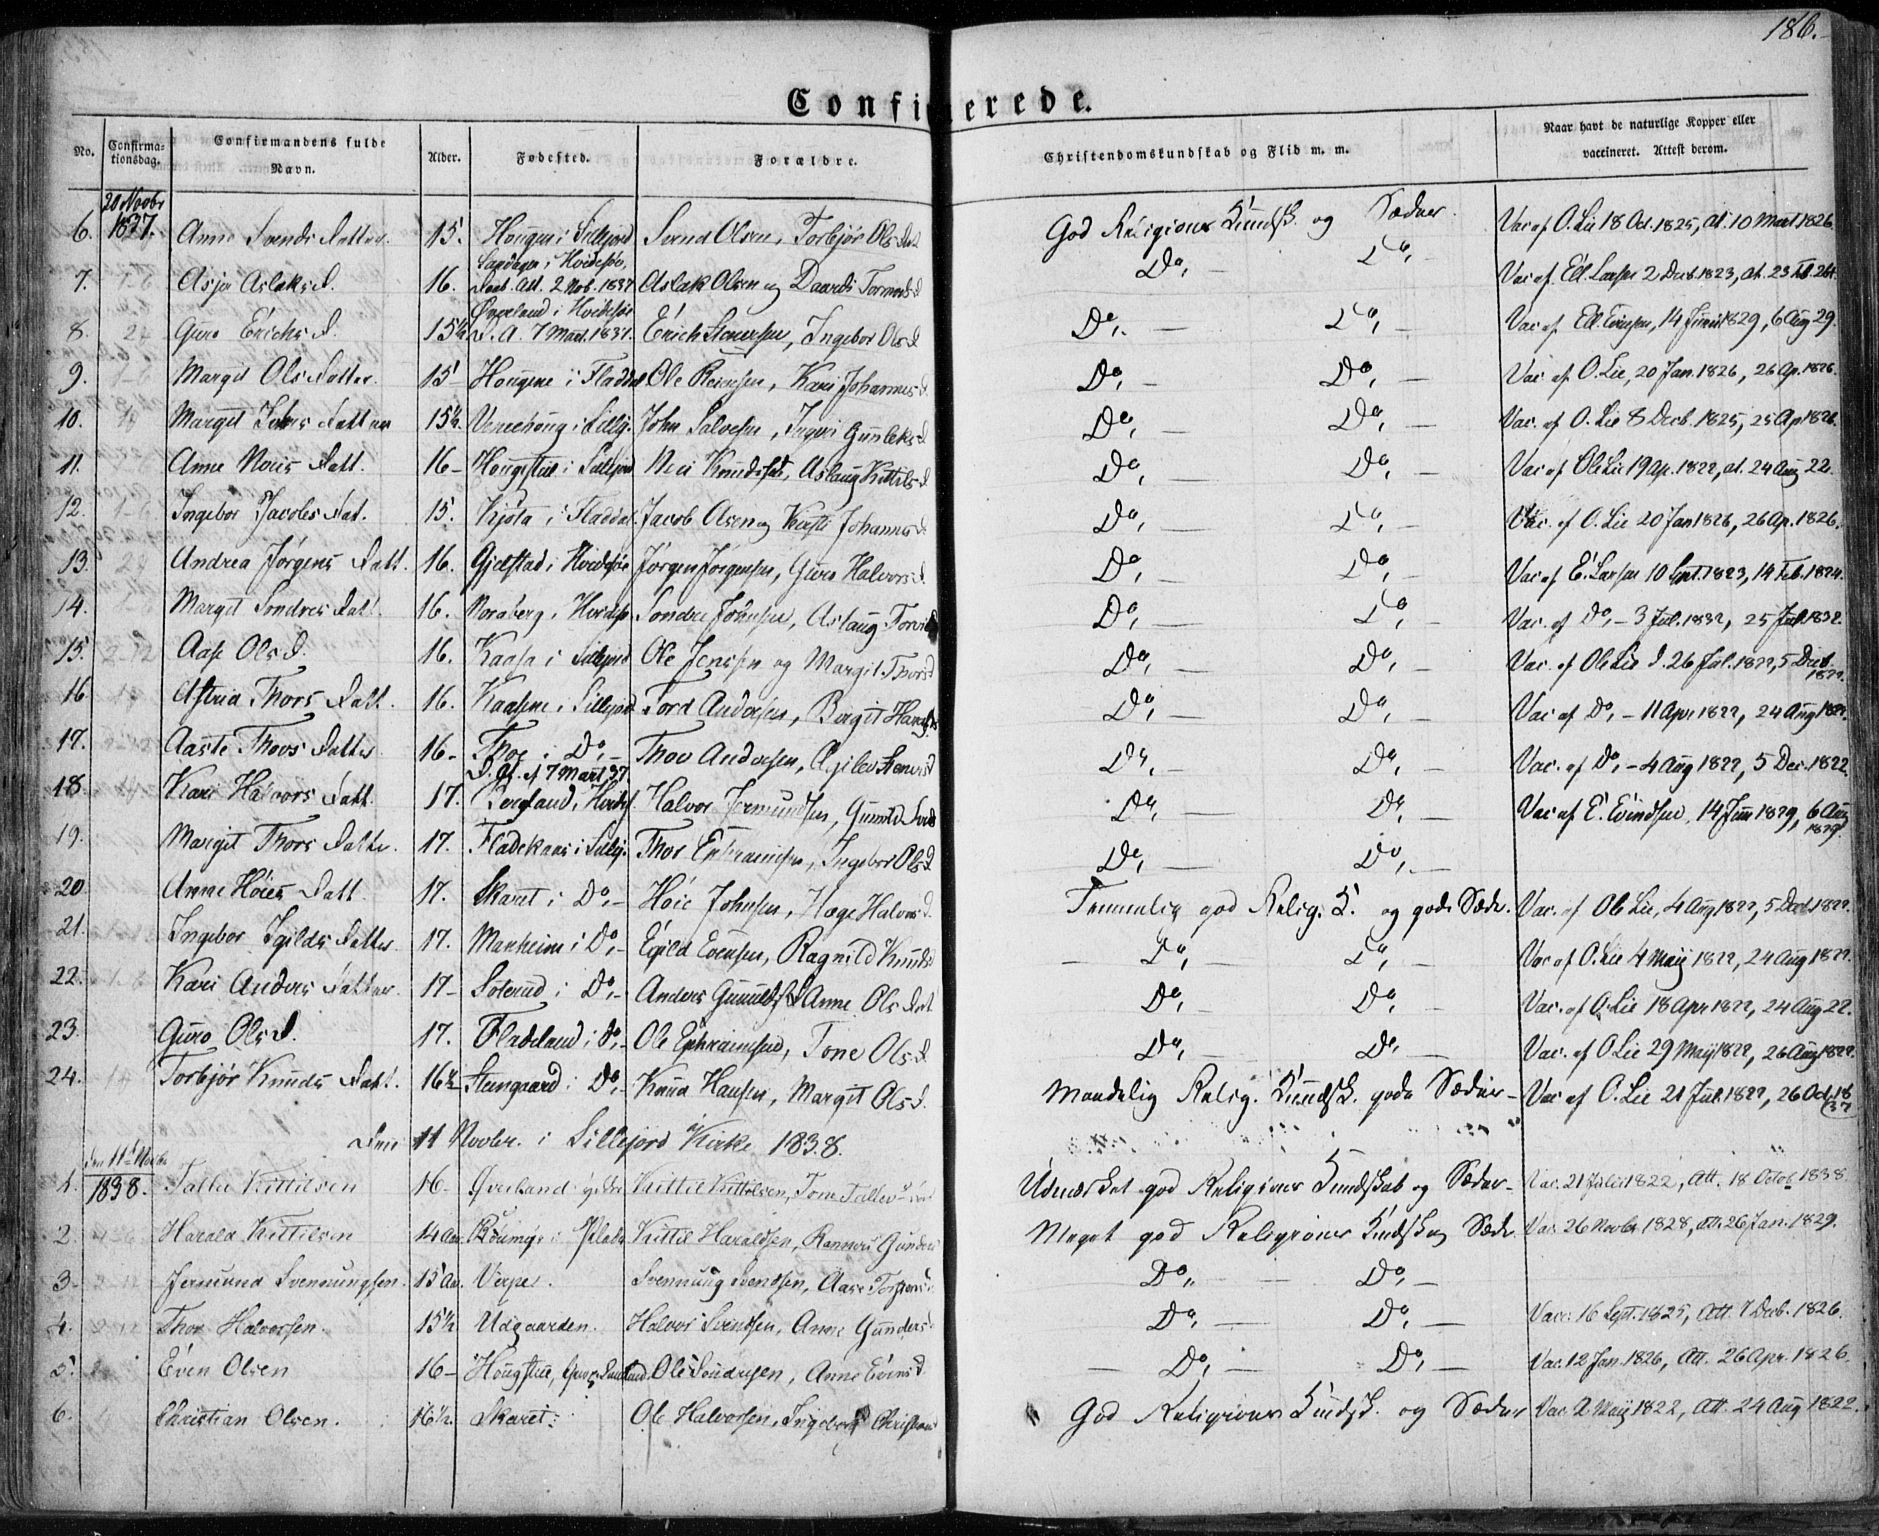 186.
Confirmerede.
No. Confirmationsdag. Confirmandens fulde Navn. Alder. Fødested. Forældre. Christendomskundskab og Flid m. m. Naar havt de naturlige Kopper eller vaccineret. Attest derom.
20 Novbr 1837.
6. Anne Svends Datter 15. Hougen i Sillejord Svend Olsen, Torbjør Ols Dat God Religions Kundsk. og Sæder. Vac af O. Lie 18 Oct. 1825, at. 10 Mart 1826
7. Asjer Aslaks D. 16. i Hvidesøe, Daab. Att. 2 Nob. 1837 Aslak Olsen og Do, — Do, — Vac af Ell. Larsen 2 Decb 1823, at. 23
8. Guro Erichs D. 15½ Øverland i Hvidesøe D. A. 7 Mart. 1837. Erich Stenersen, Ingebor Ols D Do, — Do, — Vac af Ell. Evensen, 14 Junii 1829, 6 Aug 29.
9. Margit Ols Datter 15 — Hougene i Fladdal Ole Reiersen, Kari Johannes D Do, — Do, — Vac. af. O. Lie, 20 Jan. 1826, 26 Ap. 1826.
10. Margit Johns Datter 15½ i Sillej. John Salvesen, Ingeri Gunleks D Do, — Do, — Vac. af O. Lie 8 Decb. 1825, 25 Ap 1826.
11. Anne Neris Datt. 16 — Hougstul i Sillejord Neri Knudsen, Aslaug Kittils D Do, — Do, — Vac af Ole Lie 19 Ap. 1822, at. 24 Aug 22.
12. Ingebor Jacobs Dat. 15. Kjøta i Fladdal Jacob Olsen og Kirsti Johannes D Do, — Do, — Vac. af O. Lie 20 Jan 1826, 26 Ap. 1826.
13. Andrea Jørgens Datt. 16. Gjelstad i Hvidesøe Jørgen Jørgensen, Guro Halvors D. Do, — Do, — Vac af E. Larsen 10 Sept. 1823, 14 Feb. 1824.
14. Margit Sondres Datt. 16. Noraberg i Hvidesøe Sondre Johnsen, Aslaug Do, — Do, — Vac. af Do, — 3 Jul. 1832, 25 Jul 1832.
15. Aase Ols D. 16. Kaasa i Sillejord Ole Jenssen og Margit Thors D Do, — Do, — Vac. af Ole Lie d. 26 Jul. 1822, 5 Decb. 1822.
16. Astrid Thors Datt. 16. Kaasene i Sillejord Tord Andersen, Birgit Do, — Do, — Vac af Do, — 11 Apr 1822, 24 Aug 1822.
17. Aaste Thovs Datter 16 — i Do, — Thov Andersen, Do, — Do, — Vac. af Do, — 4 Aug 1822, 5 Dec. 1822.
18. Kari Halvors Datt. 17. D. At. af 7 Mart, 37. Bergland i Hvides. Halvor Jermundsen, Gunild Do, — Do, — Vac af E. Evindsen, 14 Jun 1829, 6 Aug 1829.
19. Margit Thors Datter. 17. Fladekaas i Sillej. Thor Ephraimsen, Ingebor Ols D. Do, — Do, —
20. Anne Høies Datt. 17. Skaret i Do, — Høie Johnsen, Hæge Halvors D. Temmelig god Relig. K. og gode Sæder. Vac. af Ole Lie, 4 Aug 1822, 5 Decb 1822.
21. Ingebor Egilds Datter 17. Manheim i Do, — Egild Evensen, Ragnild Knuds D — Do, — Do, — Vac af O. Lie 4 Maij 1822, 24 Aug 1822.
22. Kari Anders Datter. 17 — Soterud i Do, — Anders Gunuldsen Anne Ols Dat Do, — Do, — Vac. af O. Lie 18 Apr 1822, 24 Aug 22.
23. Guro Ols D. 17. Fladeland i Do, — Ole Ephraimsen, Tone Ols D. Do, — Do, — Vac. af O Lie 29 Maij 1822, 26 Aug 1822.
24. Torbjør Knuds Datt. 16½ Steengaard i Do, — Knud Hansen, Margit Ols D. Maadelig Relig. Kundsk. gode Sæder — Vac af O. Lie 21 Jul. 1822, 26 Oct. 1837
Den 11 Novbr. i Sillejord Kirke 1838.
den 11te Novbr 1838.
1. Tallev Kittilsen 16 — Øverland Kittil Kittilsen, Tone Udmærket god Religions Kundskab og Sæder — Vac. 21 Julii 1822, Att. 18 Octob 1838.
2. Harald Kittilsen 14 Aar Kittil Haraldsen, Gunders Meget god Religions Kundsk og Sæder Vac. 26 Novbr 1828, att. 26 Jan. 1829.
3. Jermund Svennungsen. 15 Aar Verpe. Svennung Svendsen, Aase Torsteins Do, — Do, —
4. Thor Halvorsen. 15½ Udgaarden. Halvor Svendsen, Anne Gunders Do, — Do, — Vac: 16 Sept. 1825, Att. 7 Decb. 1826.
5. Even Olsen 16 — Hougstul, Ole Sundresen, Anne Evens D — Do, — Do, — Vac. 12 Jan. 1826, Att. 26 Apr. 1826.
6. Christian Olsen. 16½. Skaret: Ole Halvorsen, Ingeborg Christens God Religions Kundsk. og Sæder Vac. 2 Maij 1822, Att. 24 Aug 1822.